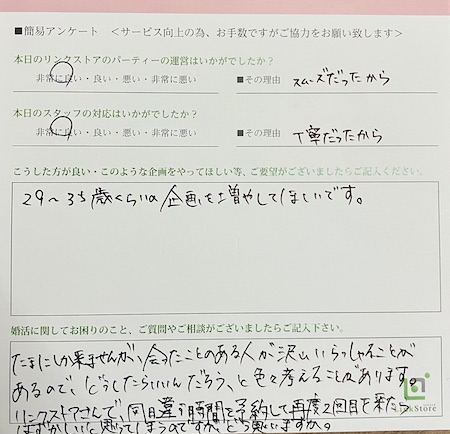 ■簡易アンケート ＜サービス向上の為、お手数ですがご協力をお願い致します＞
本日のリンクストアのパーティーの運営はいかがでしたか？
非常に良い・良い・悪い・非常に悪い ■その理由 スムーズだったから
本日のスタッフの対応はいかがでしたか？
非常に良い・良い・悪い・非常に悪い ■その理由 丁寧だったから
こうした方が良い・このような企画をやってほしい等、ご要望がございましたらご記入ください。
29～35歳くらいの企画を増やしてほしいです。
婚活に関してお困りのこと、ご質問やご相談がございましたらご記入下さい。
たまにしか来ませんが、会ったことのある人が沢山いらっしゃることが
あるので、どうしたらいいんだろう、と色々考えることがあります。
リンクストアさんで、同日違う時間を予約して再度2回目で来たら
はずかしいと思ってしまうのですが、どう思いますか。
LinkStore